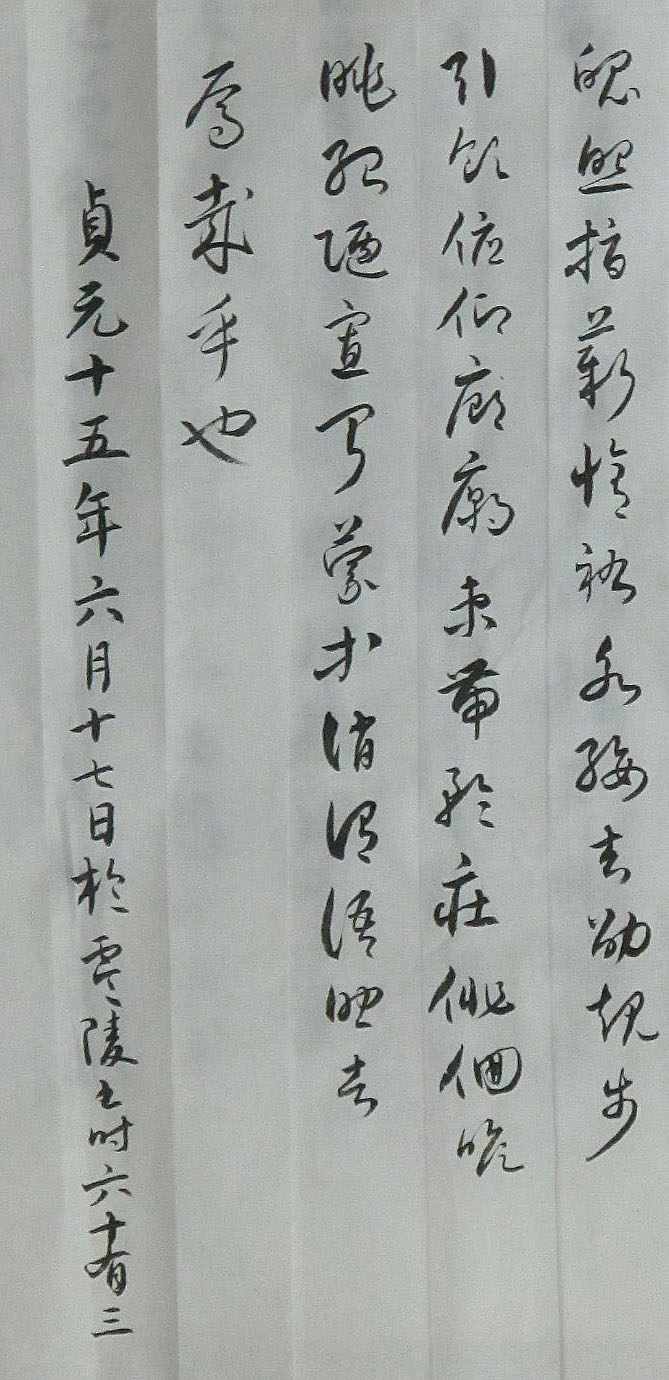 魄照指薪修祜永綏吉劭矩步
引領俯仰廊廟束帶矜莊徘徊瞻
眺孤陋寡聞愚蒙等誚謂語助者
焉哉乎也
貞元十五年六月十七日於零陵書時六十有三